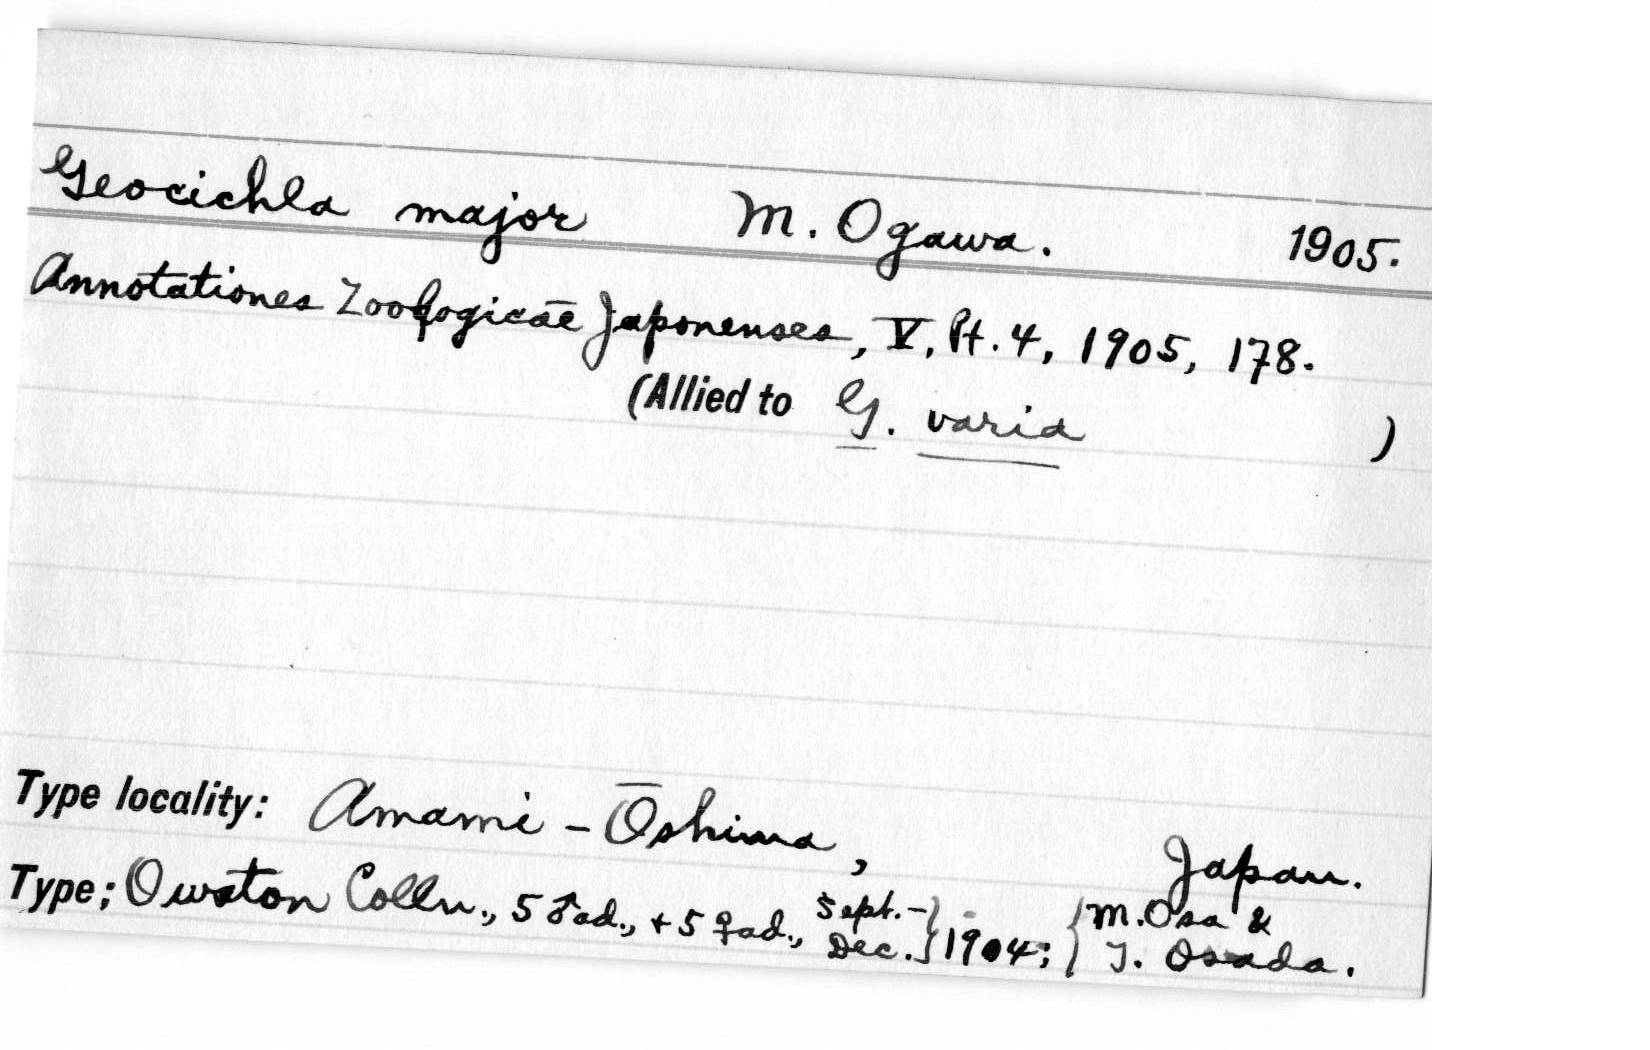 Geocichla major M. Ogawa. 1905.
Annotationes Zoologicae Japonenses, V, Pt. 4, 1905, 178.
(Allied to G. varia )
Type locality: Amami-Ōshima, Japan.
Type: Owston Colln., 5 ♂ ad., + 5 ♀ ad., Sept.- Dec. } 1904; { M. Osa & T. Osada.